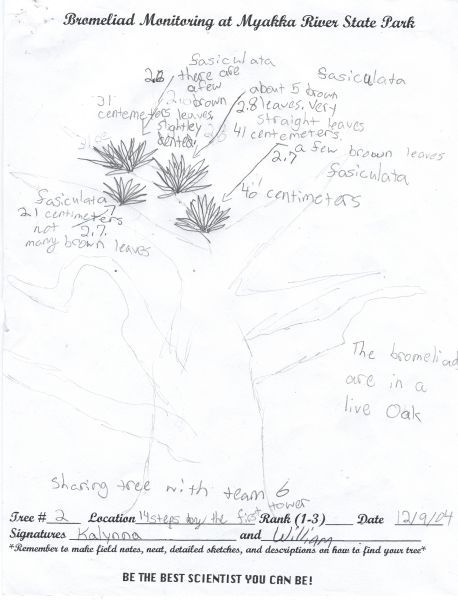 Bromeliad Monitoring at Myakka River State Park
Sasiculata
2.8 there are
a few
brown
leaves.
slightly
bented
31
centemeters
Sasiculata
about 5 brown
2.8 leaves. Very
straight leaves
41 centemeters.
a few brown leaves
2.7
Sasiculata
40 centimeters
Sasiculata
21 centimeters
not 2.7.
many brown leaves
The bromeliad
are in a
live Oak
Sharing tree with team 6
Tree # 2 Location 14 steps by the first tower Rank (1-3) Date 12/9/04
Signatures Kalynna and William
*Remember to make field notes, neat, detailed sketches, and descriptions on how to find your tree*
BE THE BEST SCIENTIST YOU CAN BE!